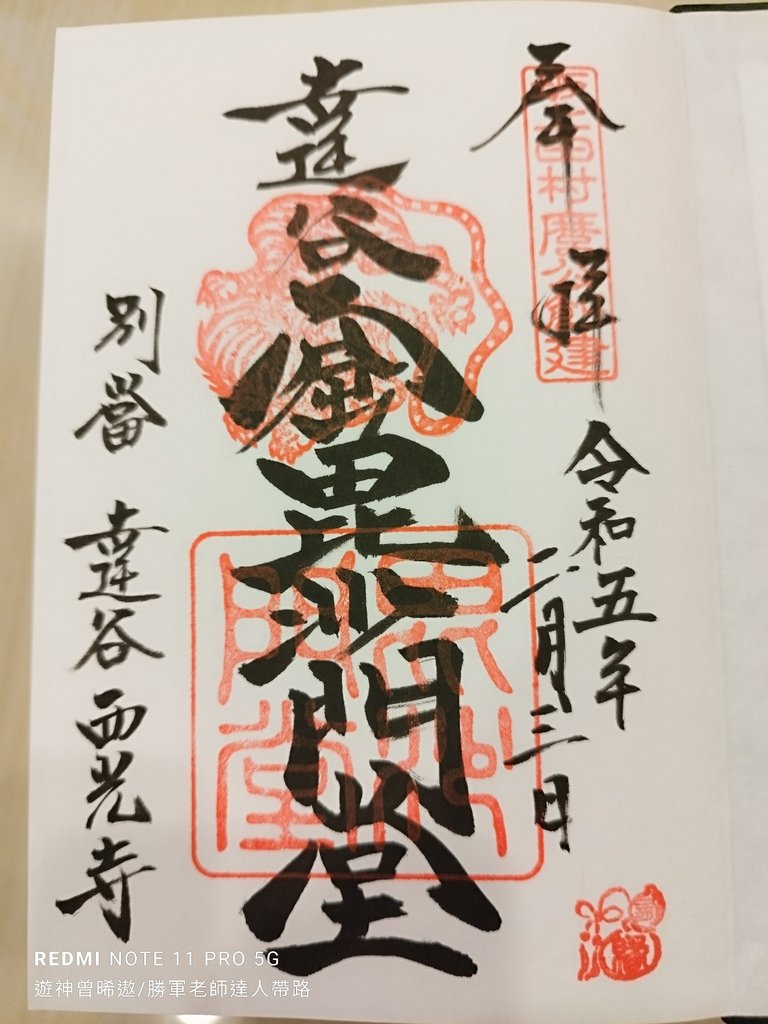 奉拝
坂上田村麿公創建
令和五年
二月三日
達谷窟毘沙門堂
毘沙門堂
別當 達谷西光寺
REDMI NOTE 11 PRO 5G
遊神曾晞遨/勝軍老師達人帶路